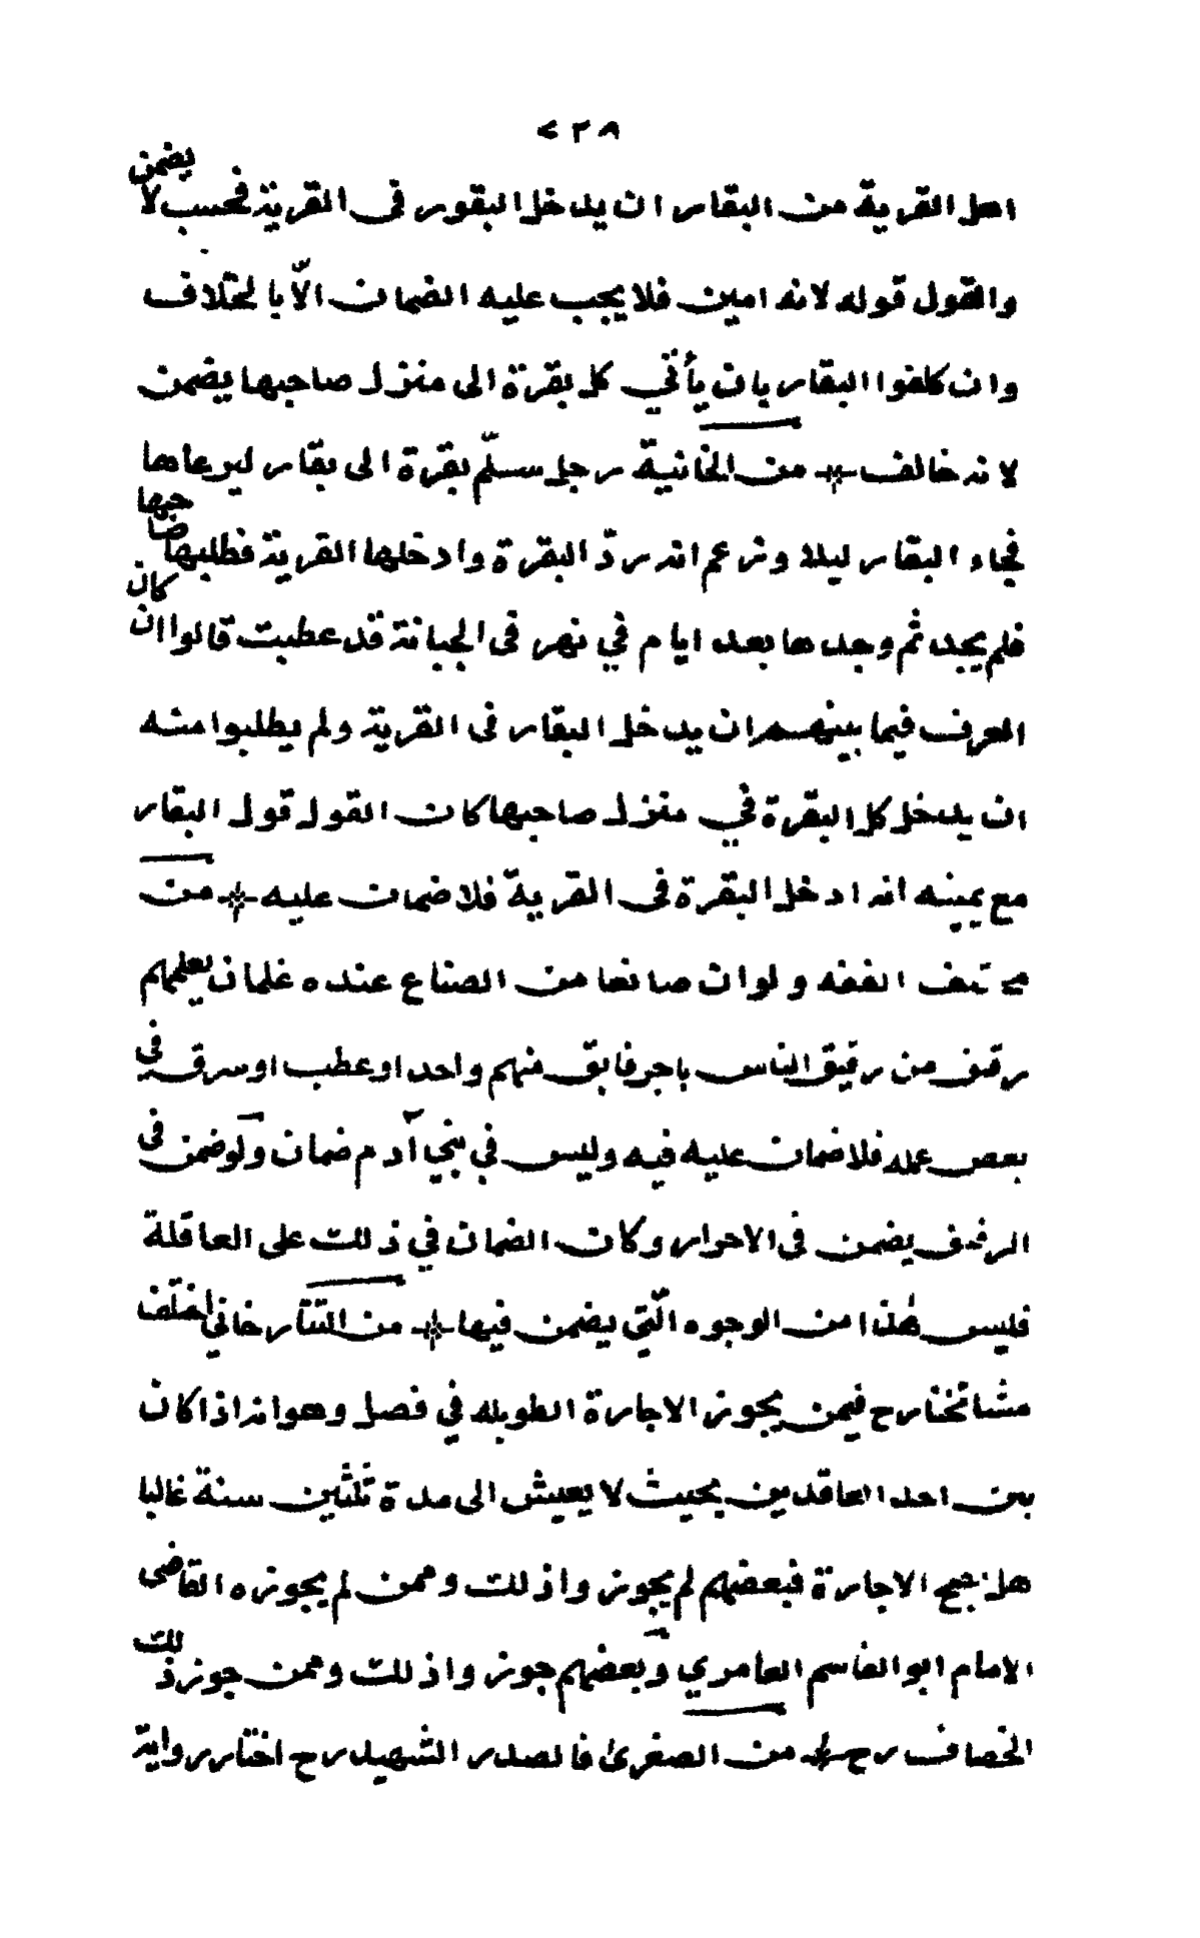 ٢٣٨
اهل القرية من البقار ان يدخل البقور فى القرية فحسب لا يضمن
والقول قوله لانه امين فلا يجب عليه الضمان الّا بالخلاف
وان كلفوا البقار بان يأتي كل بقرة الى منزل صاحبها يضمن
لانه خالف من الخانية رجل سلّم بقرة الى بقار ليرعاها
فجاء البقار ليلا وزعم انه ردّ البقرة وادخلها القرية فطلبها صاحبها
فلم يجد ثم وجدها بعد ايام في نهر فى الجبانة قد عطبت قالوا ان كان
العرف فيما بينهم ان يدخل البقار فى القرية ولم يطلبوا منه
ان يدخل كل البقرة في منزل صاحبها كان القول قول البقار
مع يمينه انه ادخل البقرة فى القرية فلا ضمان عليه من
الفقه ولو ان صانعا من الصناع عنده غلمان يعلمهم
رقيق من رقيق الناس باجر فابق منهم واحد او عطب او سرق في
بعض عمله فلا ضمان عليه فيه وليس في بني آدم ضمان ولو ضمن فى
الرقيق يضمن فى الاحرار وكان الضمان في ذلك على العاقلة
فليس هذا من الوجوه الّتي يضمن فيها من التتارخاني اختلف
مشائخنا رح فيمن يجوز الاجارة الطويله في فصل وهو انه اذا كان
سن احد العاقدين بحيث لا يعيش الى مدة ثلثين سنة غالبا
هل تصح الاجارة فبعضهم لم يجوز واذلك وممن لم يجوزه القاضى
الامام ابو القاسم العامري وبعضهم جوز واذلك وممن جوز ذلك
الخصاف رح من الصغرى فالصدر الشهيد رح اختار رواية